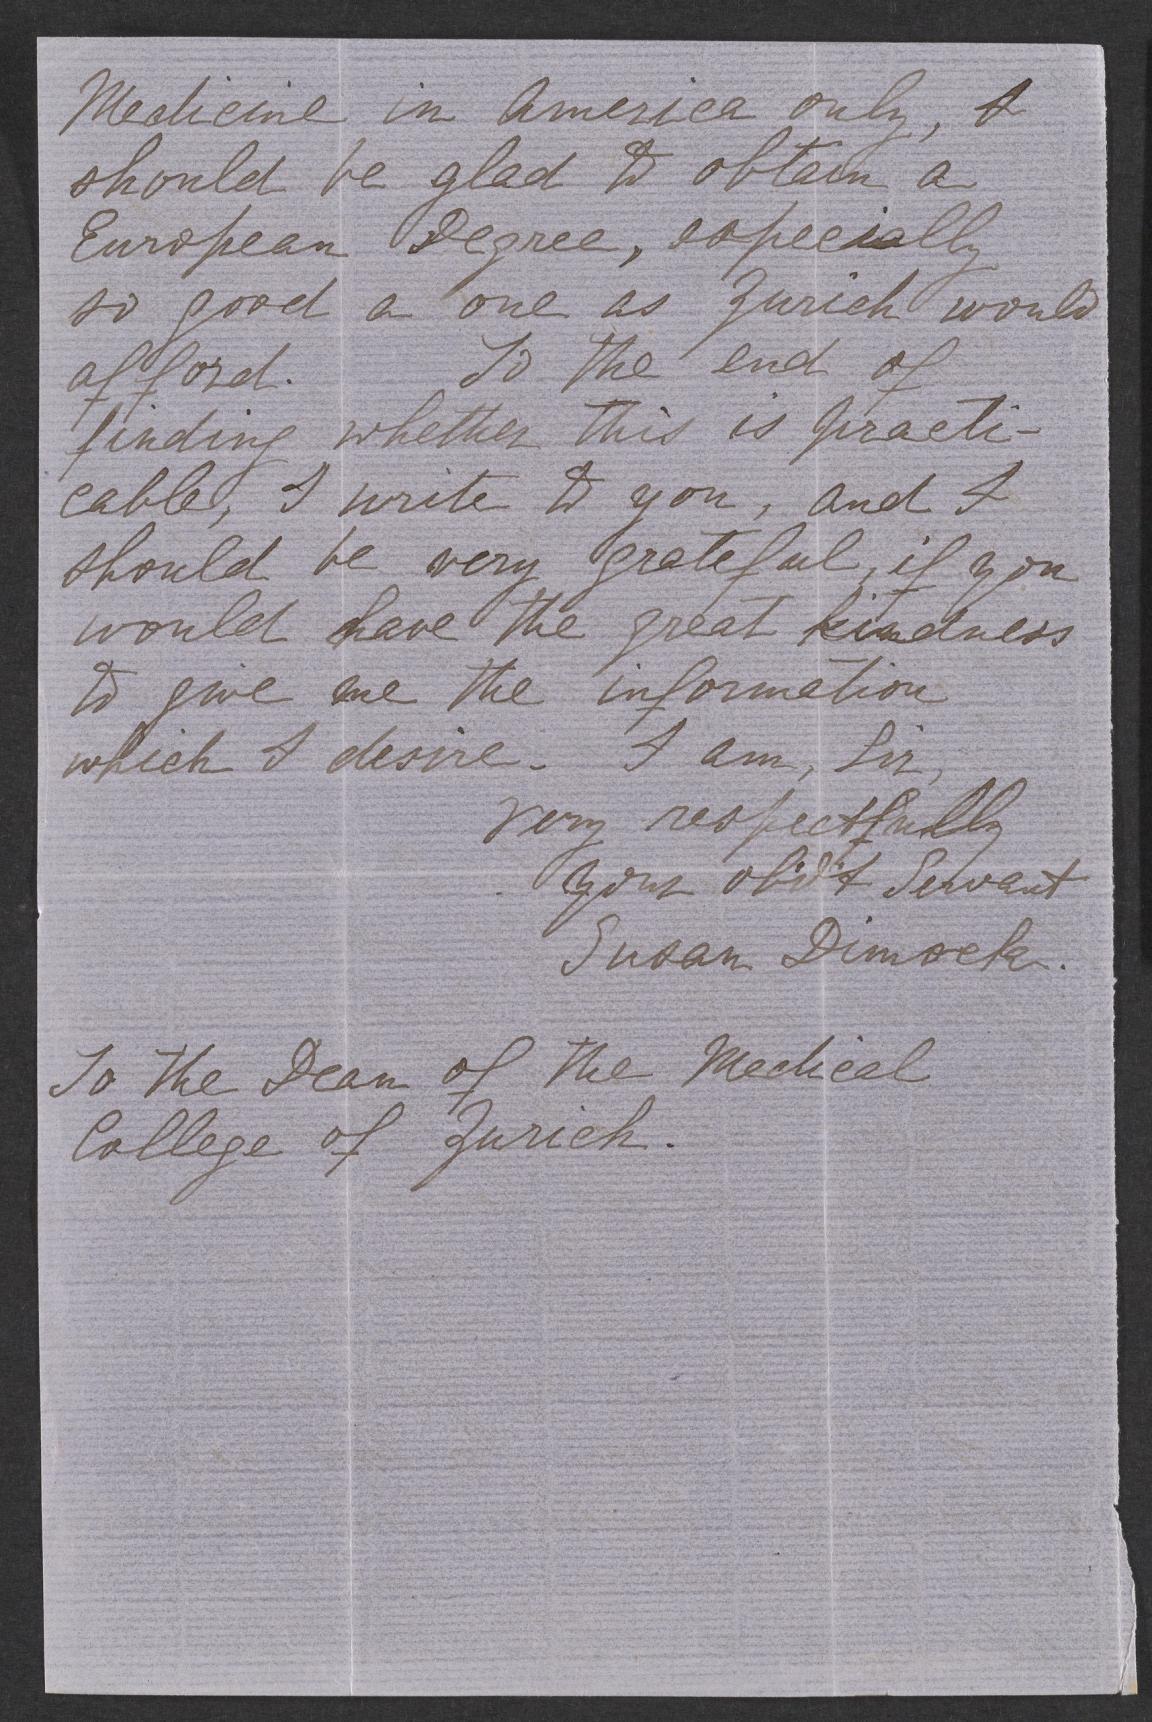 Medicine in America only, I
should be glad to obtain a
European Degree, especially
so good a one as Zurich would
afford. To the end of
finding whether this is practi-
cable, I write to you, and I
should be very grateful, if you
would have the great kindness
to give me the information
which I desire. I am, Sir,
very respectfully
your obd't Servant
Susan Dimock.
To the Dean of the Medical
College of Zurich.